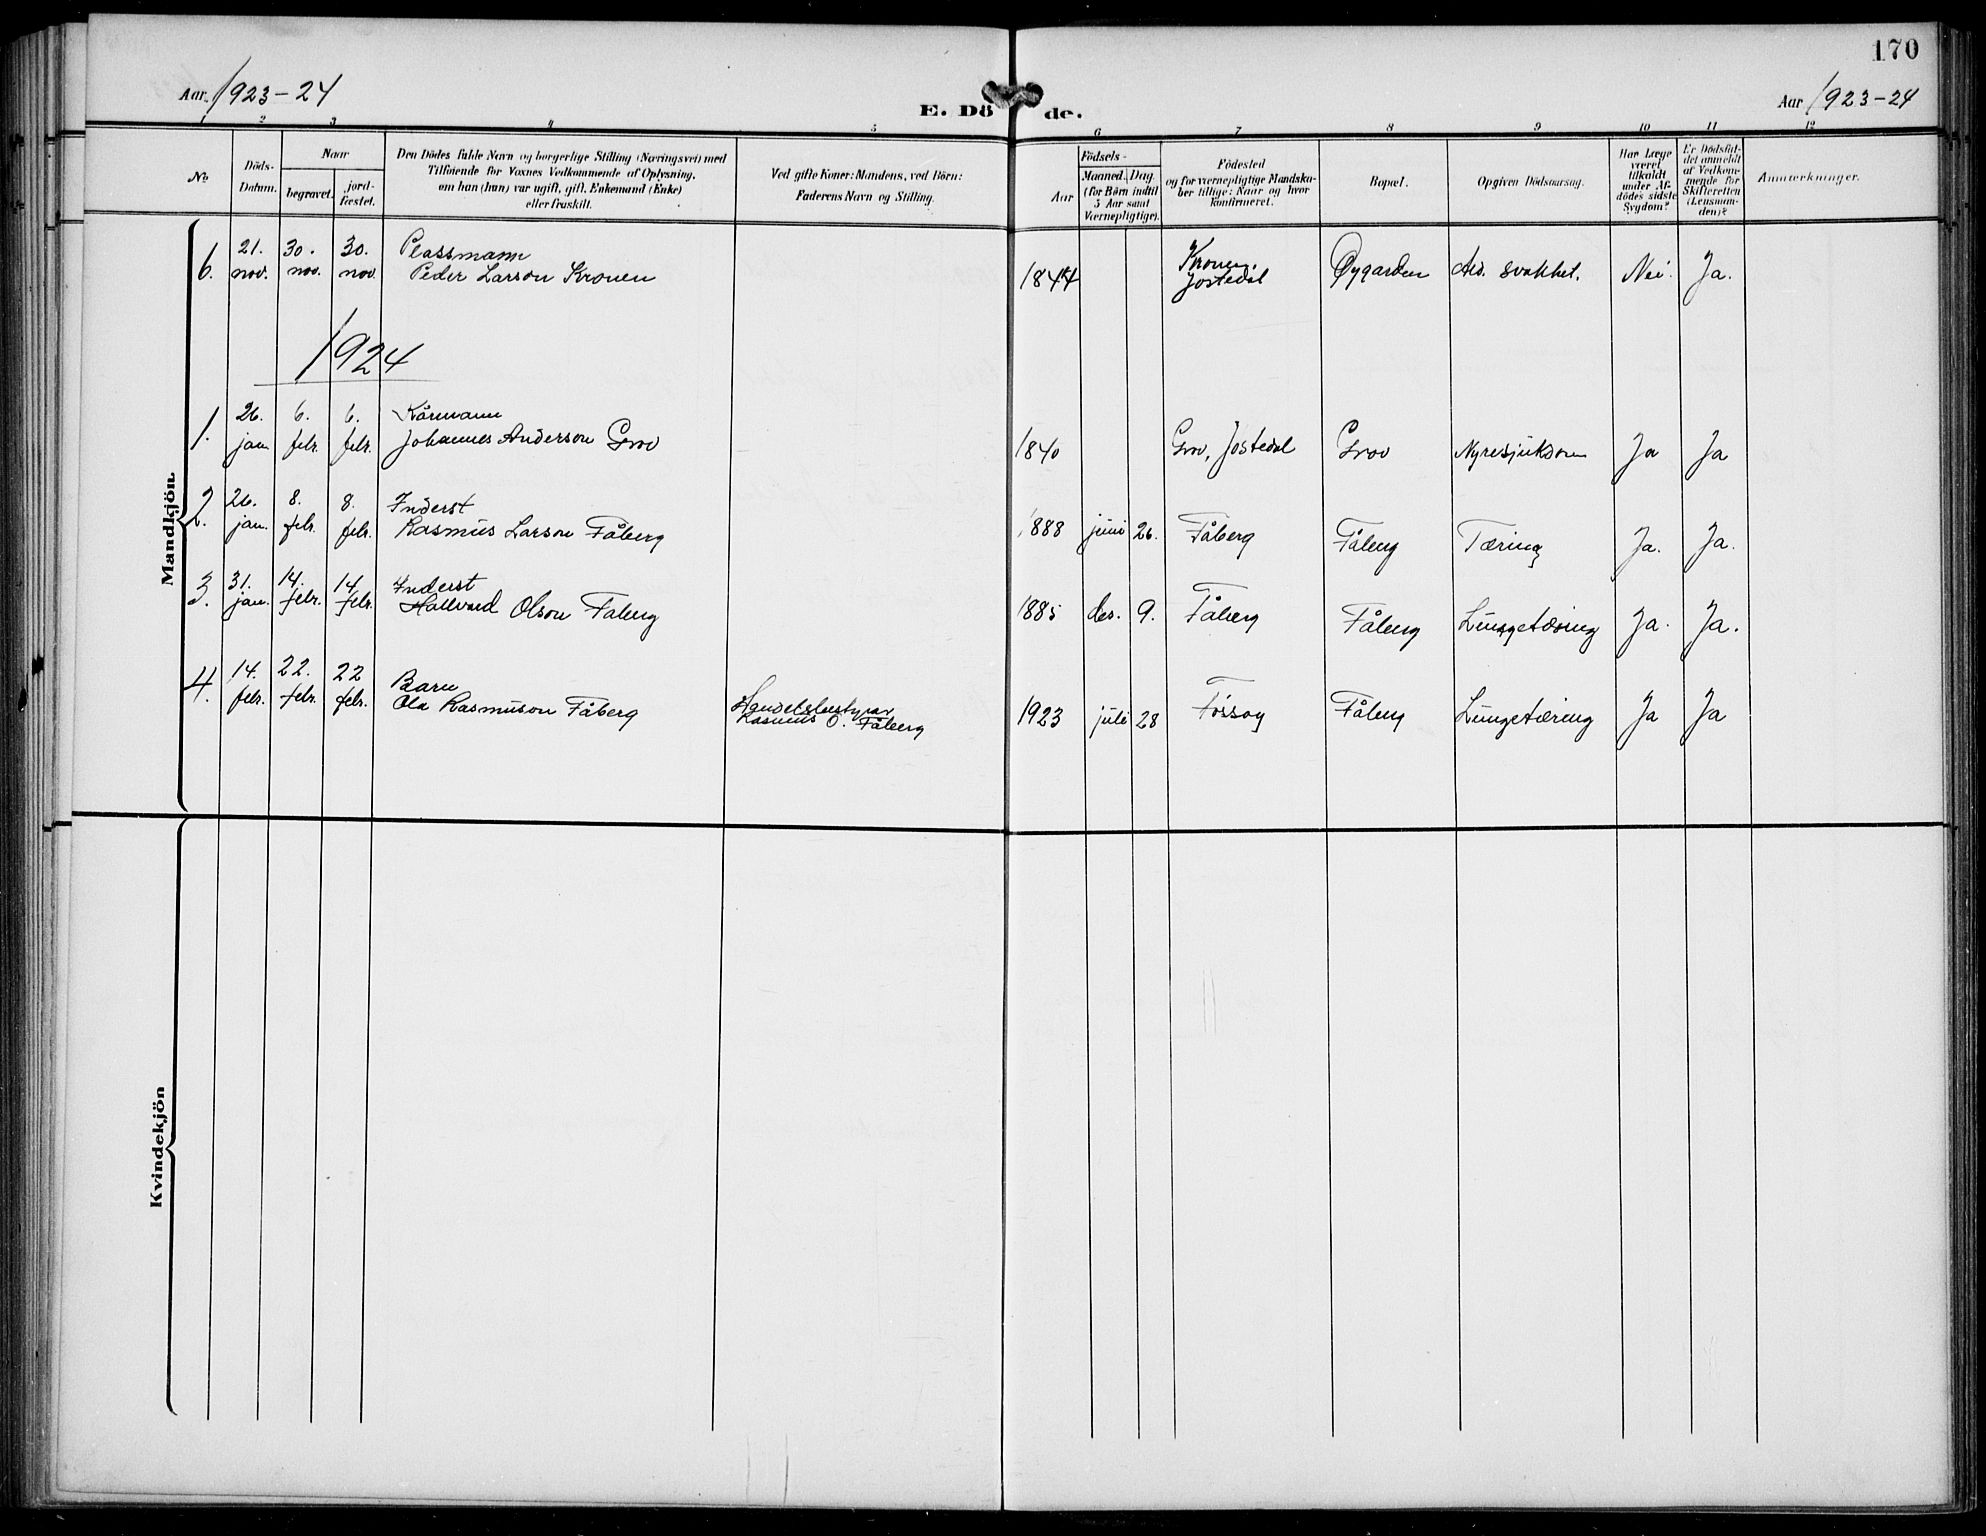 170
Aar 1923-24
E. Döde.
Aar 1923-24
1 2 3 4 5 6 7 8 9 10 11 12
No.
Döds-Datum.
Naar
begravet.
jord-fæstet.
Den Dödes fulde Navn og borgerlige Stilling (Næringsvei) med
Tilföiende for Voxnes Vedkommende af Oplysning,
om han (hun) var ugift, gift, Enkemand (Enke)
eller fraskilt.
Ved gifte Koner: Mandens, ved Börn:
Faderens Navn og Stilling.
Födsels-
Aar
Maaned. Dag.
(for Börn indtil
5 Aar samt
Værnepligtige).
Födested
og for værnepligtige Mandska-
ber tillige: Naar og hvor
konfirmeret.
Bopæl.
Opgiven Dödsaarsag.
Har Læge
været
tilkaldt
under Af-
dödes sidste
Sygdom?
Er Dödsfal-
det anmeldt
af Vedkom-
mende for
Skifteretten
(Lensman-
den)?
Anmærkninger.
Mandkjön.
6. 21. nov. 30. nov. 30. nov. Plassmann
Peder Larson Kronen 1844 Kronen, Jostedal Øygarden Ald. svakhet. Nei. Ja.
1924
1. 26. jan 6. febr. 6. febr. Kårmann
Johannes Anderson Grov 1840 Grov, Jostedal Grov Nyresjukdom Ja Ja
2. 26. jan. 8. febr. 8. febr. Inderst
Rasmus Larson Fåberg 1888 juni 26. Fåberg Fåberg Tæring Ja. Ja.
3. 31. jan. 14. febr. 14 febr. Inderst
Hallvard Olson Faberg 1885 des. 9. Fåberg Fåberg Lungetæring Ja. Ja.
4. 14. febr. 22. febr. 22 febr. Barn
Ola Rasmuson Fåberg Handelsbestyrar
Rasmus O. Fåberg 1923 juli 28 Fåberg Lungetæring Ja Ja
Kvindekjön